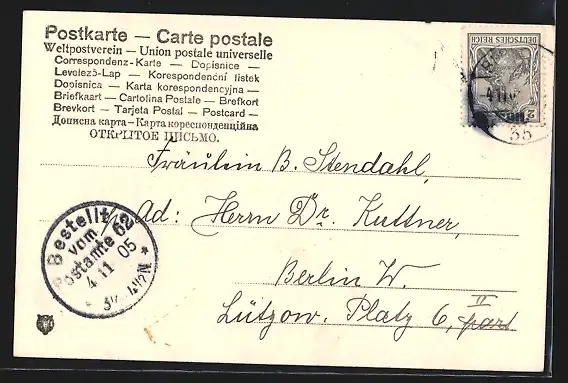 Postkarte — Carte postale
Weltpostverein — Union postale universelle
Correspondenz-Karte — Dopisnice —
Levelező-Lap — Korespondenční lístek
Dopisnica — Karta korespondencyjna —
Briefkaart — Cartolina Postale — Brefkort
Brevkort — Tarjeta Postal — Postcard —
Дописна карта — Карта кореспонденційна
ОТКРЫТОЕ ПИСЬМО.
DEUTSCHES REICH
2
35
Fräulein B. Stendahl,
Ad: Herrn Dr. Kuttner,
Berlin W.
Lützow. Platz 6, II part
Bestellt
vom
Postamte 62
4 11 05
3½ 4½N